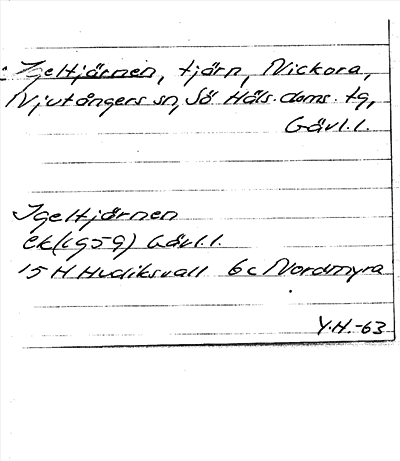 : Igeltjärnen, tjärn, Nickora,
Njutångers sn, Sö Häls. doms. tg,
Gävl. l.
Igeltjärnen
ek (1959) Gävl. l.
15 H Hudiksvall 6c Nordmyra
Y.H.-63